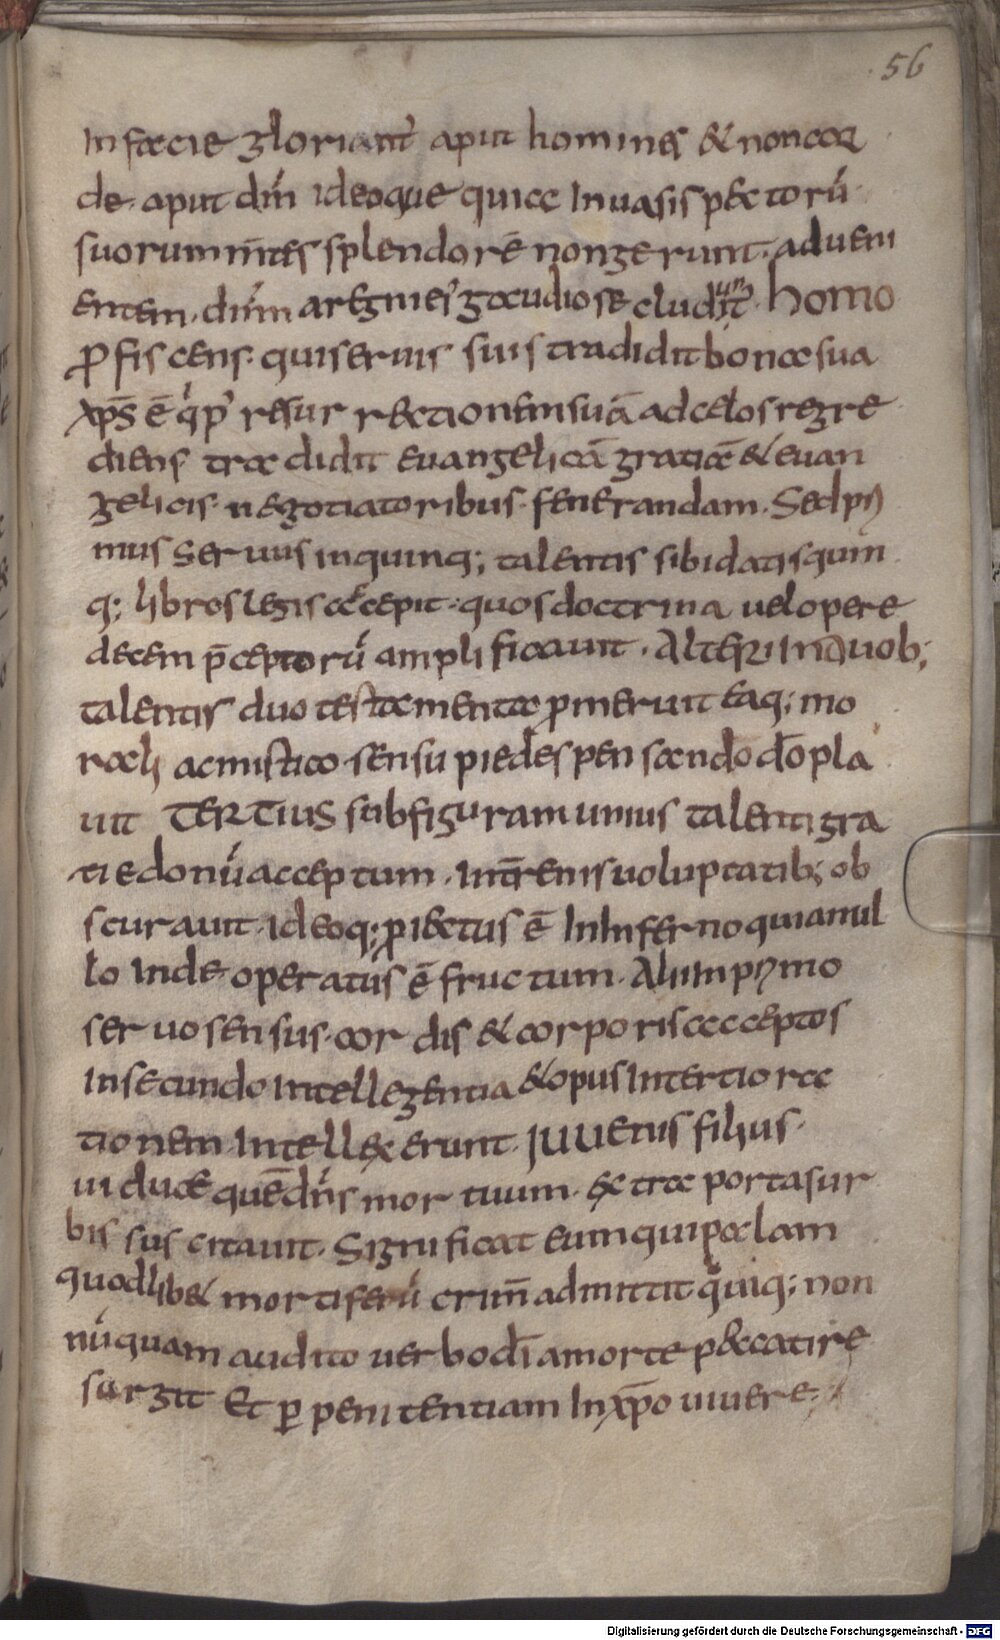 56
in facie gloriant̄ aput homines & non cor
de. aput dn̄m ideoque quia in uasis pectorū
suorum m̄tes splendorē non gerunt. adueni
entem. dn̄m a regni ei' gaudio se cludunt. homo
ꝓfiscens. qui seruis suis tradidit bona sua
xp̄s ē q' p' resurrectionem suā ad celos regre
diens tradidit euangelicā gratiā & euan
gelicis negotiatoribus. fenerandam. Sed pri
mus seruus in quinq; talentis sibi datis quin
q; libros legis accepit. quos doctrina uel opere
decem p̄ceptorū amplificauit. Alter in duob;
talentis duo testamenta ꝓmeruit eaq; mo
rali ac mistico sensu pie despensando dō pla
uit Tertius sub figuram unius talenti gra
tie donū acceptum. in terrenis uoluptatib; ob
scurauit. ideoq; ꝓiectus ē in inferno quia nul
lo inde operatus ē fructum. Alii in primo
seruo sensus. cordis & corporis acceptos
in secundo intellegentia & opus in tertio ra
tionem intellexerunt. Iuuenis filius.
uiduae quē dn̄s mortuum. extra porta sur
bis suscitauit. Significat eum qui palam
quodlib& mortiferū crimn̄ admittit quiq; non
nūquam audito uerbo dī a morte peccati re
surgit Et ꝑ penitentiam in xp̄o uiuere;
Digitalisierung gefördert durch die Deutsche Forschungsgemeinschaft - DFG